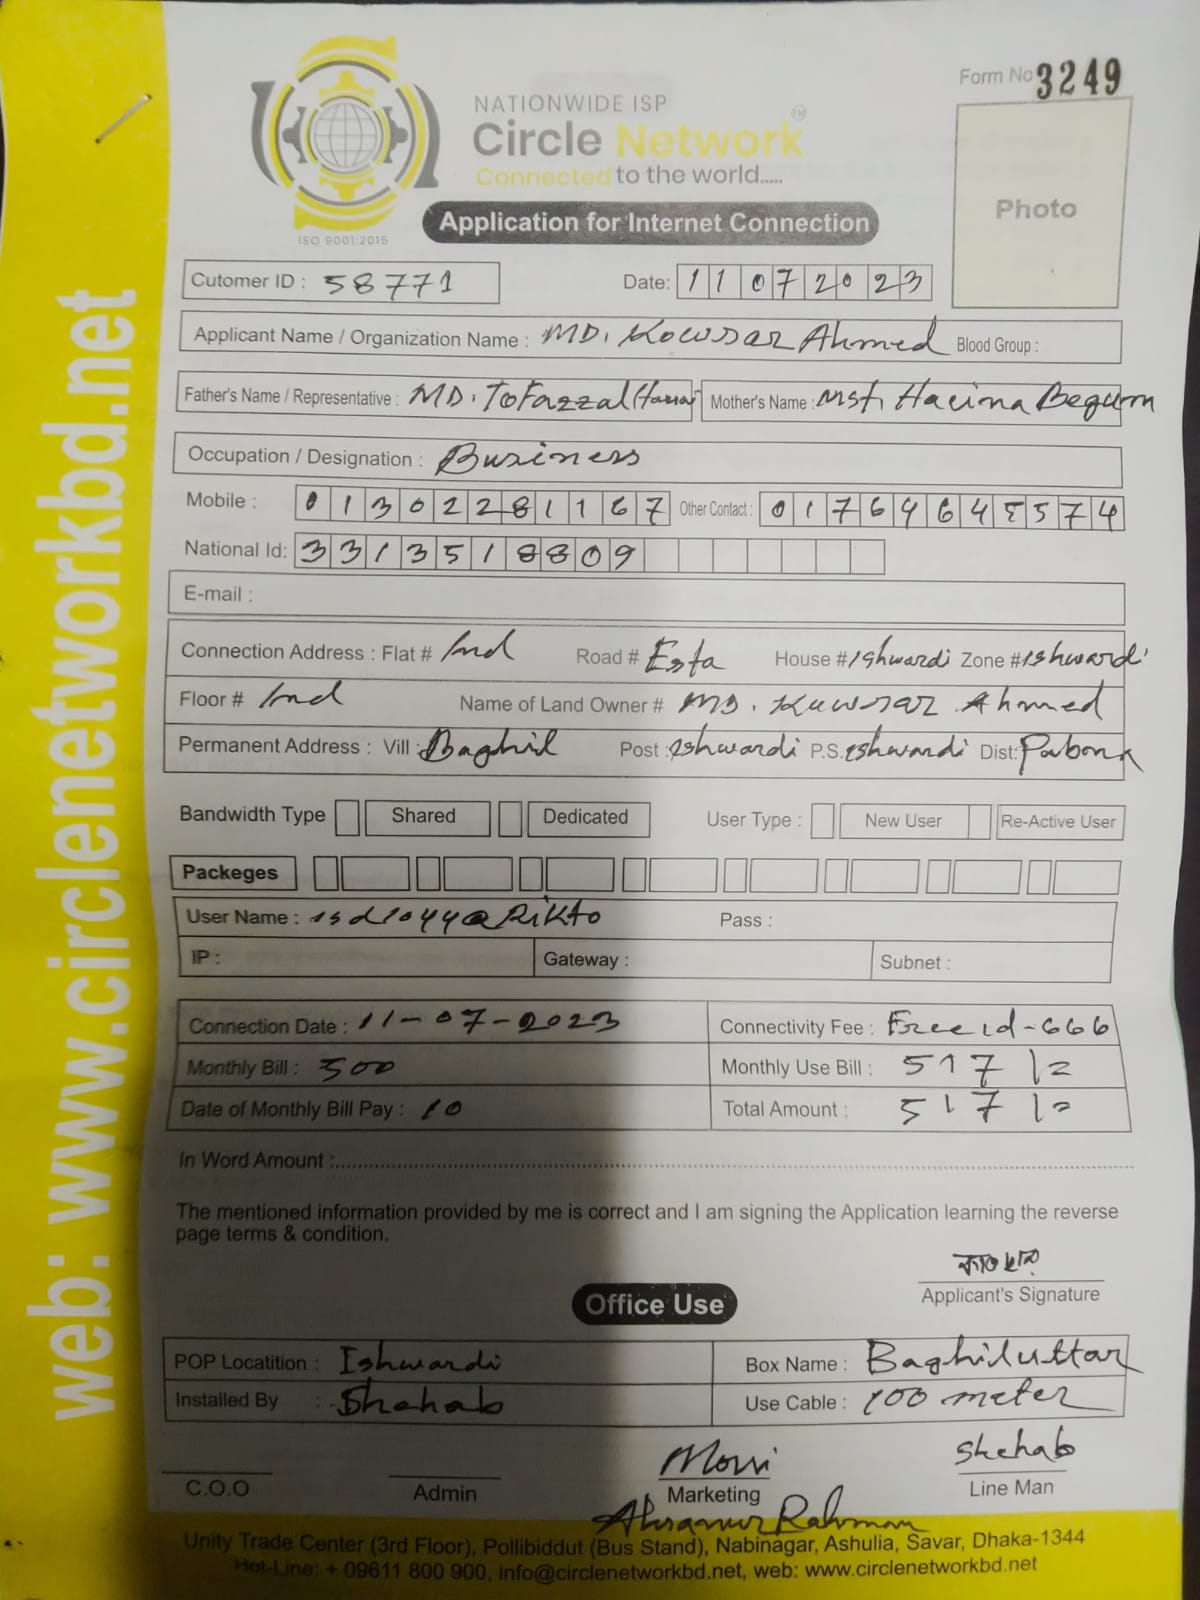 Form No 3249
NATIONWIDE ISP
Circle Network TM
Connected to the world.....
Photo
ISO 9001:2015
Application for Internet Connection
Cutomer ID : 58771 Date: 11072023
Applicant Name / Organization Name : MD. Kowsar Ahmed Blood Group :
Father's Name / Representative : MD. Tofazzal Mother's Name : Mst. Hacina Begum
Occupation / Designation : Business
Mobile : 01302281167 Other Contact :
National Id: 3313518809
E-mail :
Connection Address : Flat # Ind Road # Esta House # Ishwardi Zone # Ishwardi
Floor # Ind Name of Land Owner # MD. Kuwsar Ahmed
Permanent Address : Vill : Baghil Post : Eshwardi P.S. Eshwardi Dist: Pabona
Bandwidth Type Shared Dedicated User Type : New User Re-Active User
Packeges
User Name : isd1044@Rikto Pass :
IP : Gateway : Subnet :
Connection Date : 11-07-2023 Connectivity Fee : Free id-666
Monthly Bill : 500 Monthly Use Bill : 517/=
Date of Monthly Bill Pay : 10 Total Amount : 517/=
In Word Amount :
The mentioned information provided by me is correct and I am signing the Application learning the reverse
page terms & condition.
Applicant's Signature
Office Use
POP Locatition : Ishwardi Box Name : Baghiluttar
Installed By : Shehab Use Cable : 100 meter
C.O.O Admin Marketing Shehab Line Man
Rahman
Unity Trade Center (3rd Floor), Pollibiddut (Bus Stand), Nabinagar, Ashulia, Savar, Dhaka-1344
Hot-Line: + 09611 800 900, info@circlenetworkbd.net, web: www.circlenetworkbd.net
web: www.circlenetworkbd.net